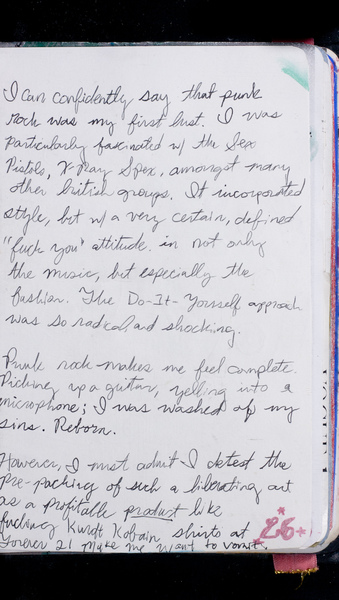 I can confidently say that punk
rock was my first lust. I was
particularly fascinated w/ the Sex
Pistols, X-Ray Spex, amongst many
other british groups. It incorporated
style, but w/ a very certain, defined
"fuck you" attitude. in not only
the music, but especially the
fashion. The Do-It-Yourself approach
was so radical and shocking.
Punk rock makes me feel complete.
Picking up a guitar, yelling into a
microphone; I was washed of my
sins. Reborn.
However, I must admit I detest the
Pre-packing of such a liberating art
as a profitable product like
fucking Kurdt Kobain shirts at
Forever 21 make me want to vomit.
*26*